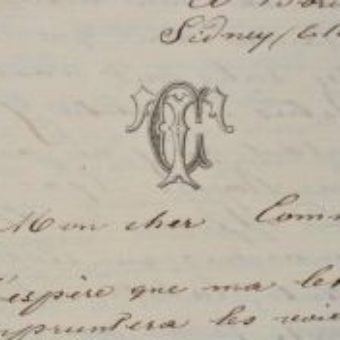 Sidney
TC
Mon cher Comm
'espère que ma let
mpruntera les voie